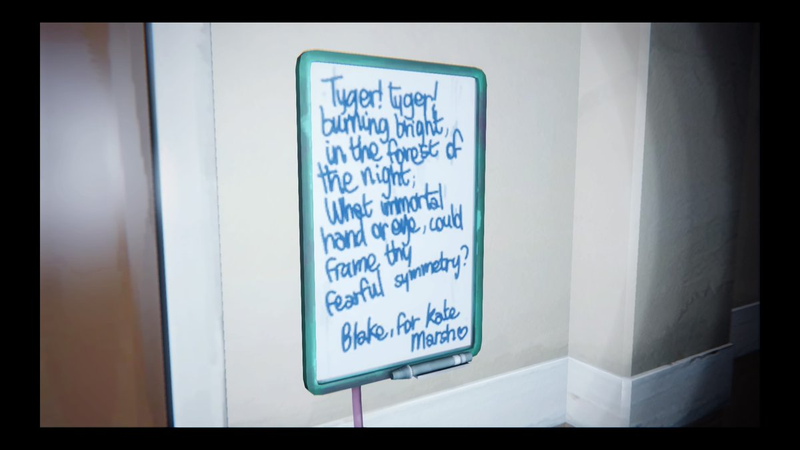 Tyger! tyger!
burning bright,
in the forest of
the night;
What immortal
hand or eye, could
frame thy
fearful symmetry?
Blake, for Kate
Marsh